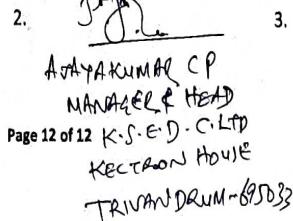 2. 3.
AJAYAKUMAR CP
MANAGER & HEAD
Page 12 of 12 K.S.E.D.C.LTD
KELTRON HOUSE
TRIVANDRUM-695033